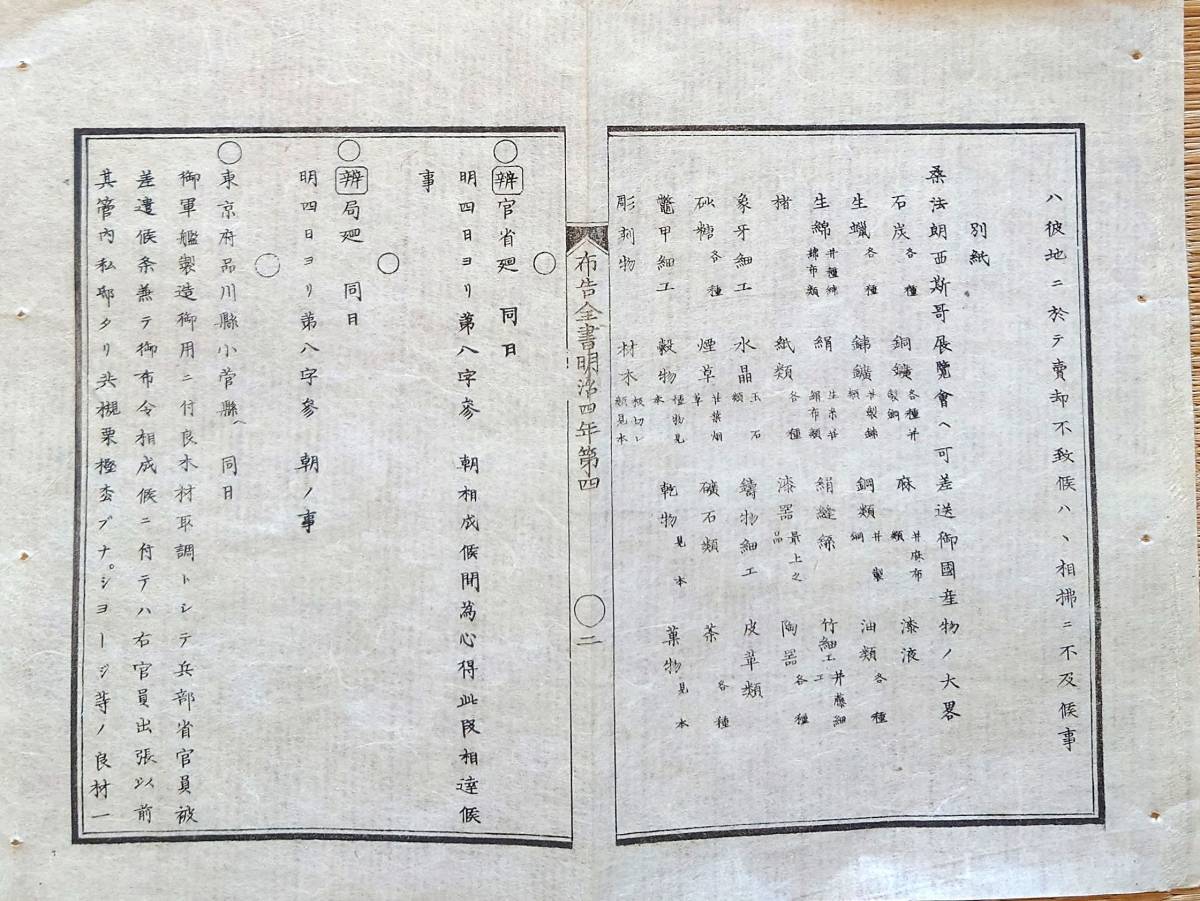 ハ彼地ニ於テ賣却不致候ハヽ相拂ニ不及候事
別紙
桑法朗西斯哥展覽會ヘ可差送御國産物ノ大畧
石炭各種 銅鑛各種并製銅 麻并麻布類 漆液
生蠟各種 銕鑛并製銕類 鋼類并製鋼 油類各種
生綿并種綿綿布類 絹生糸并絹布類 絹縫絲 竹細工并藤細工
楮 紙類各種 漆器最上之品 陶器各種
象牙細工 水晶玉石類 鑄物細工 皮革類
砂糖各種 煙草并葉烟草 礦石類 茶各種
鼈甲細工 穀物植物見本 乾物見本 菓物見本
彫刻物 材木板切レ類見本
布告全書明治四年第四 〇二
〇
〇辨官省廻 同日
明四日ヨリ第八字參 朝相成候間為心得此段相達候
事
〇
〇辨局廻 同日
明四日ヨリ第八字參 朝ノ事
〇
〇東京府品川縣小菅縣ヘ 同日
御軍艦製造御用ニ付良木材取調トシテ兵部省官員被
差遣候条兼テ御布令相成候ニ付テハ右官員出張以前
其管内私邸タリ共槻栗樫杢ブナ。ショージ等ノ良材一